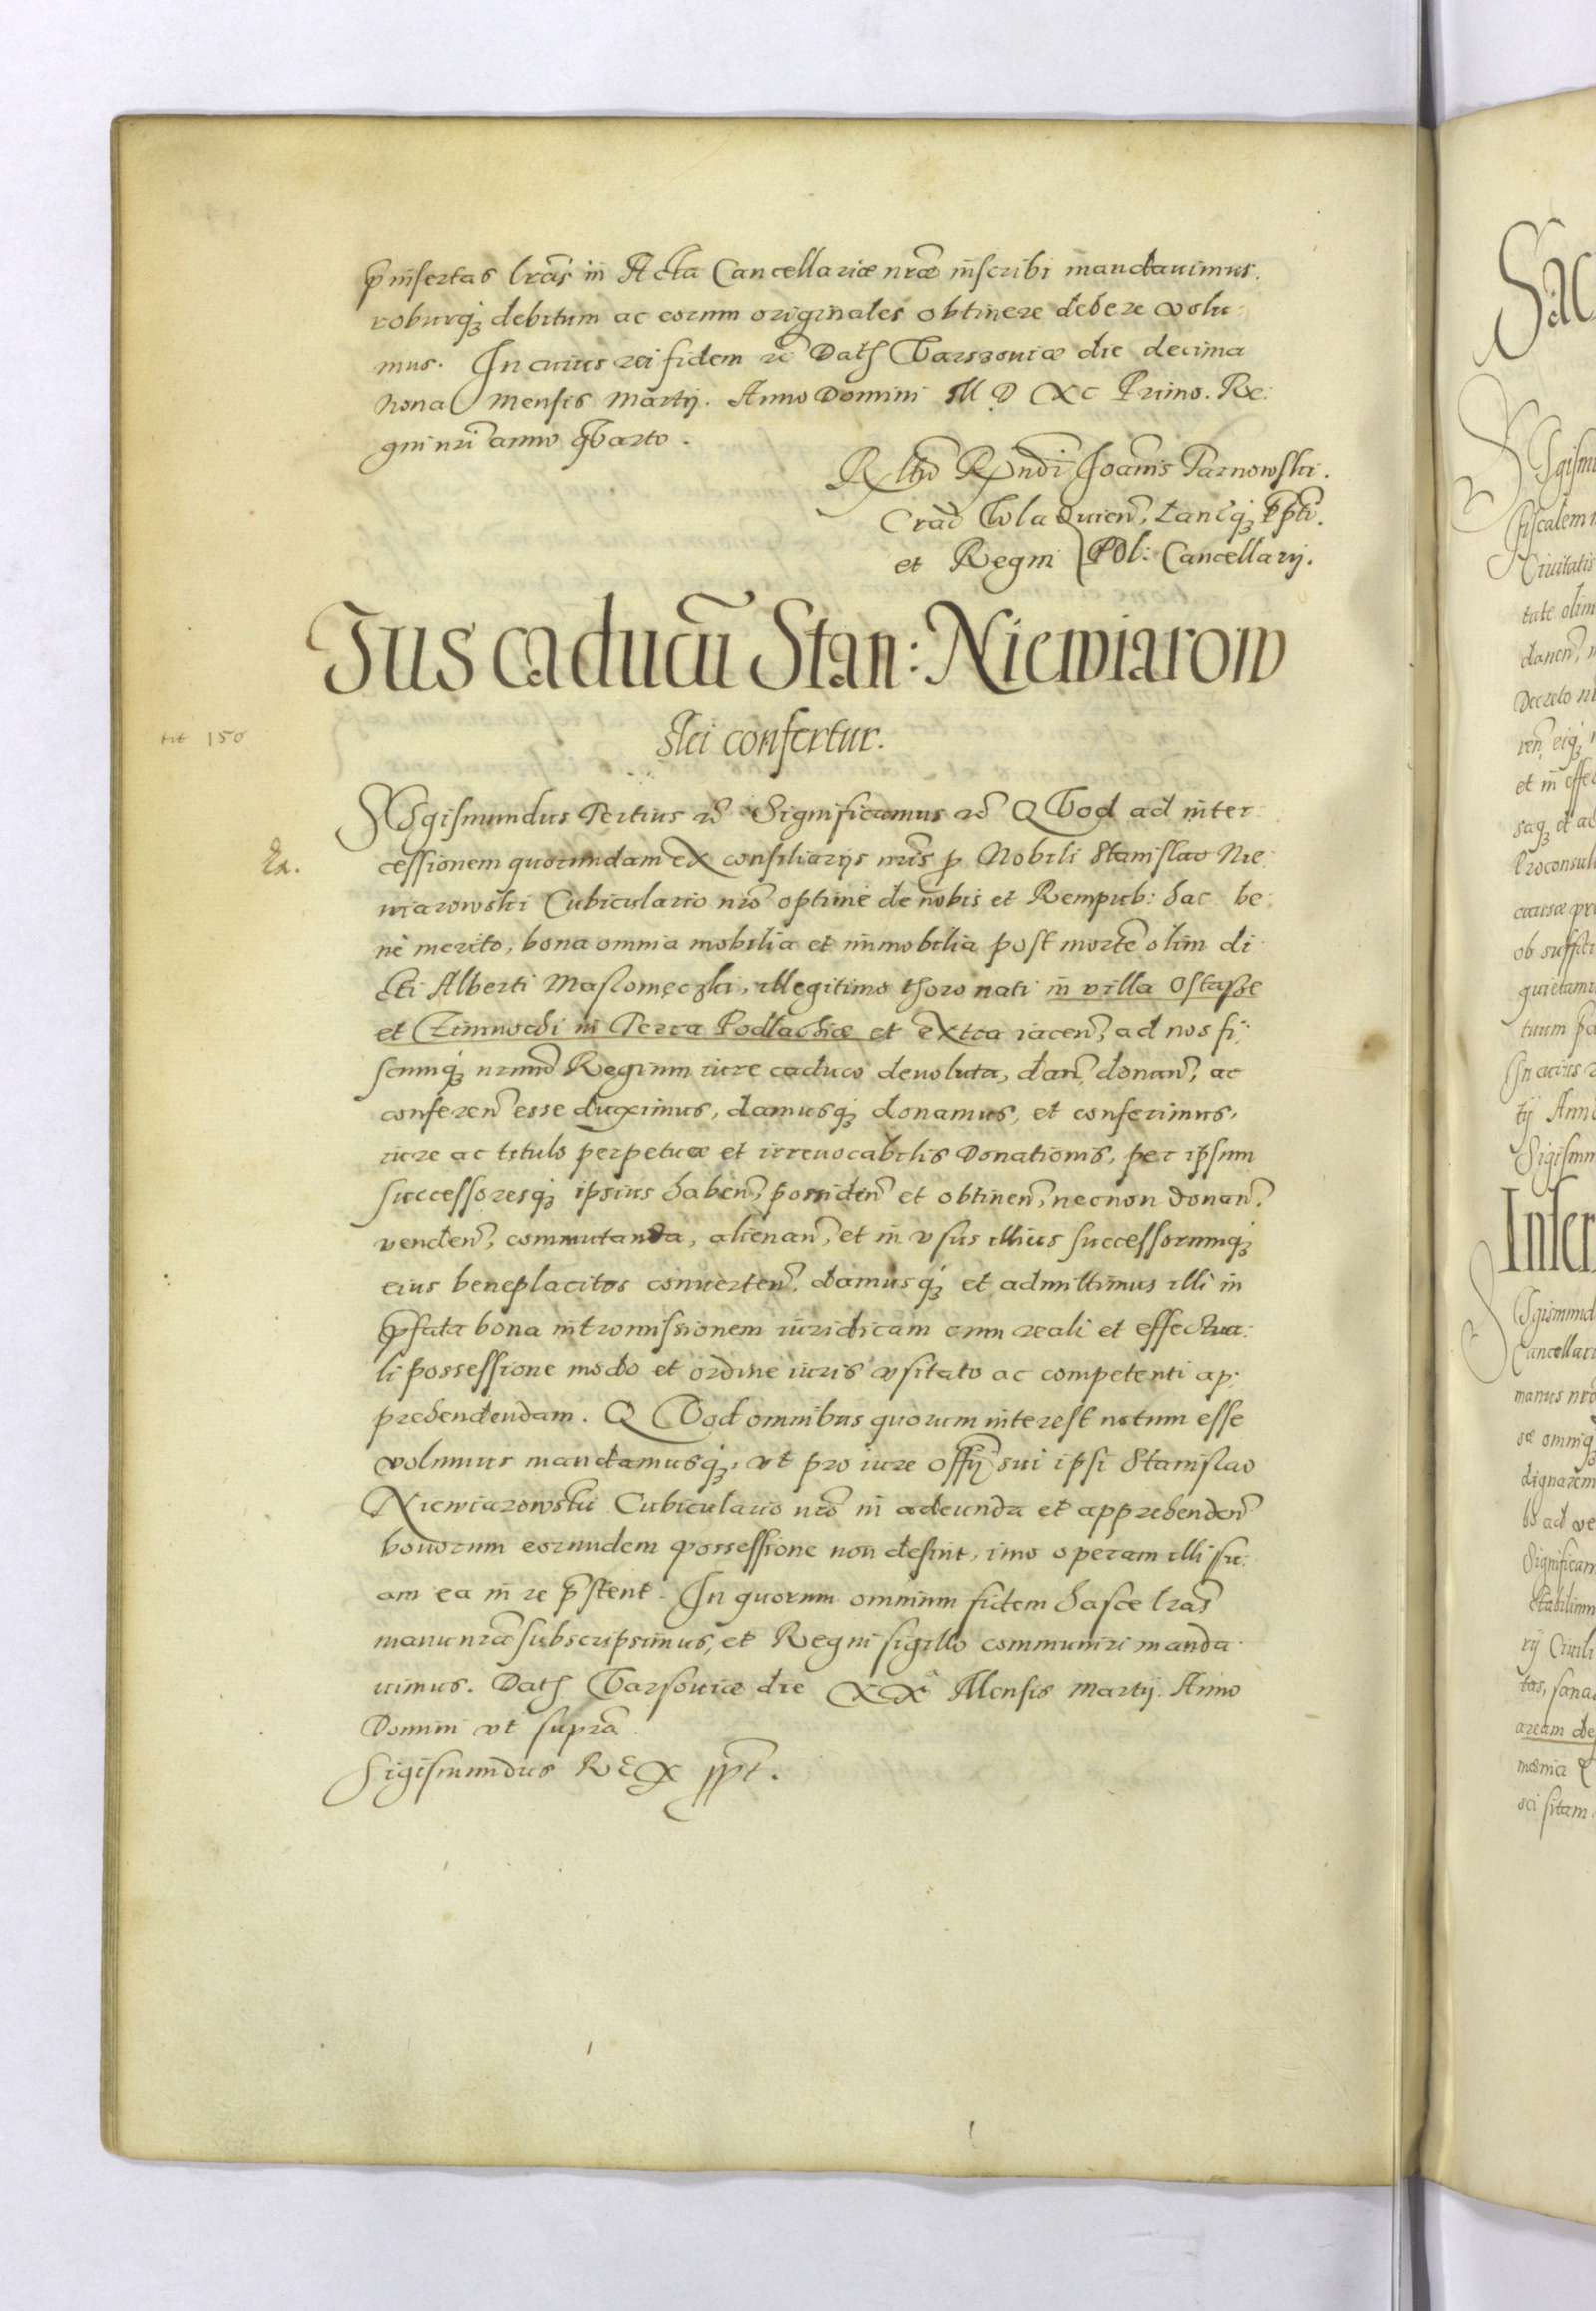 p̄insertas lrās in Acta Cancellariæ nræ inscribi mandauimus.
roburq3 debitum ac eorum originales obtinere debere volu:
mus. In cuius rei fidem rc̄ Dat3 Varsouiæ die decima
nona mensis martij. Anno Domini M D XC Primo. Re:
gni nr̄i anno qVarto.
R̄ndi Joānis Tarnowski.
Crac̄ Vladiuien̄, Lancq3 P̄pti.
et Regni Pol: Cancellarij.
Jus caducū Stan: Niewiarow
ski confertur.
tit 150
Ex.
SIgismundus Tertius rc̄ Significamus rc̄ QVod ad inter:
cessionem quorundam ex consiliarijs nr̄is p̄ Nobili Stanislao Nie:
wiarowski Cubiculario nrō optime de nobis et Rempub: hac be:
ne merito, bona omnia mobilia et immobilia post mortē olim di
cti Alberti Masłomęczki, illegitimo thoro nati in villa Ostasze
et Zimnochi in Terra Podlachiæ et extra iacen̄, ad nos fi:
scumq3 nrum̄ Regium iure caduco deuoluta, dan̄, donan̄, ac
conferen̄ esse duximus, damusq3 donamus, et conferimus,
iure ac titulo perpetuæ et irreuocabilis Donationis, per ipsum
successoresq3 ipsius haben̄, possiden̄ et obtinen̄, necnon donan̄,
venden̄, commutanda, alienan̄, et in vsus illius successorumq3
eius beneplacitos conuerten̄. damusq3 et admittimus illi in
p̄fata bona intromissionem iuridicam cum reali et effectua:
li possessione modo et ordine iuris vsitato ac competenti ap:
prehendendam. QVod omnibus quorum interest notum esse
volumus mandamusq3, vt pro iure offij sui ipsi Stanislao
Niewiarowski Cubiculario nrō in adeunda et apprehenden̄
bonorum eorundem possessione non desint, imo operam illi su:
am ea in re p̄stent. In quorum omnium fidem hasce lrās
manu nrā subscripsimus, et Regni sigillo communiri manda
uimus. Dat3 Varsouiæ die XXᵃ Mensis martij. Anno
Domini vt supra.
Sigismundus REX sspt.